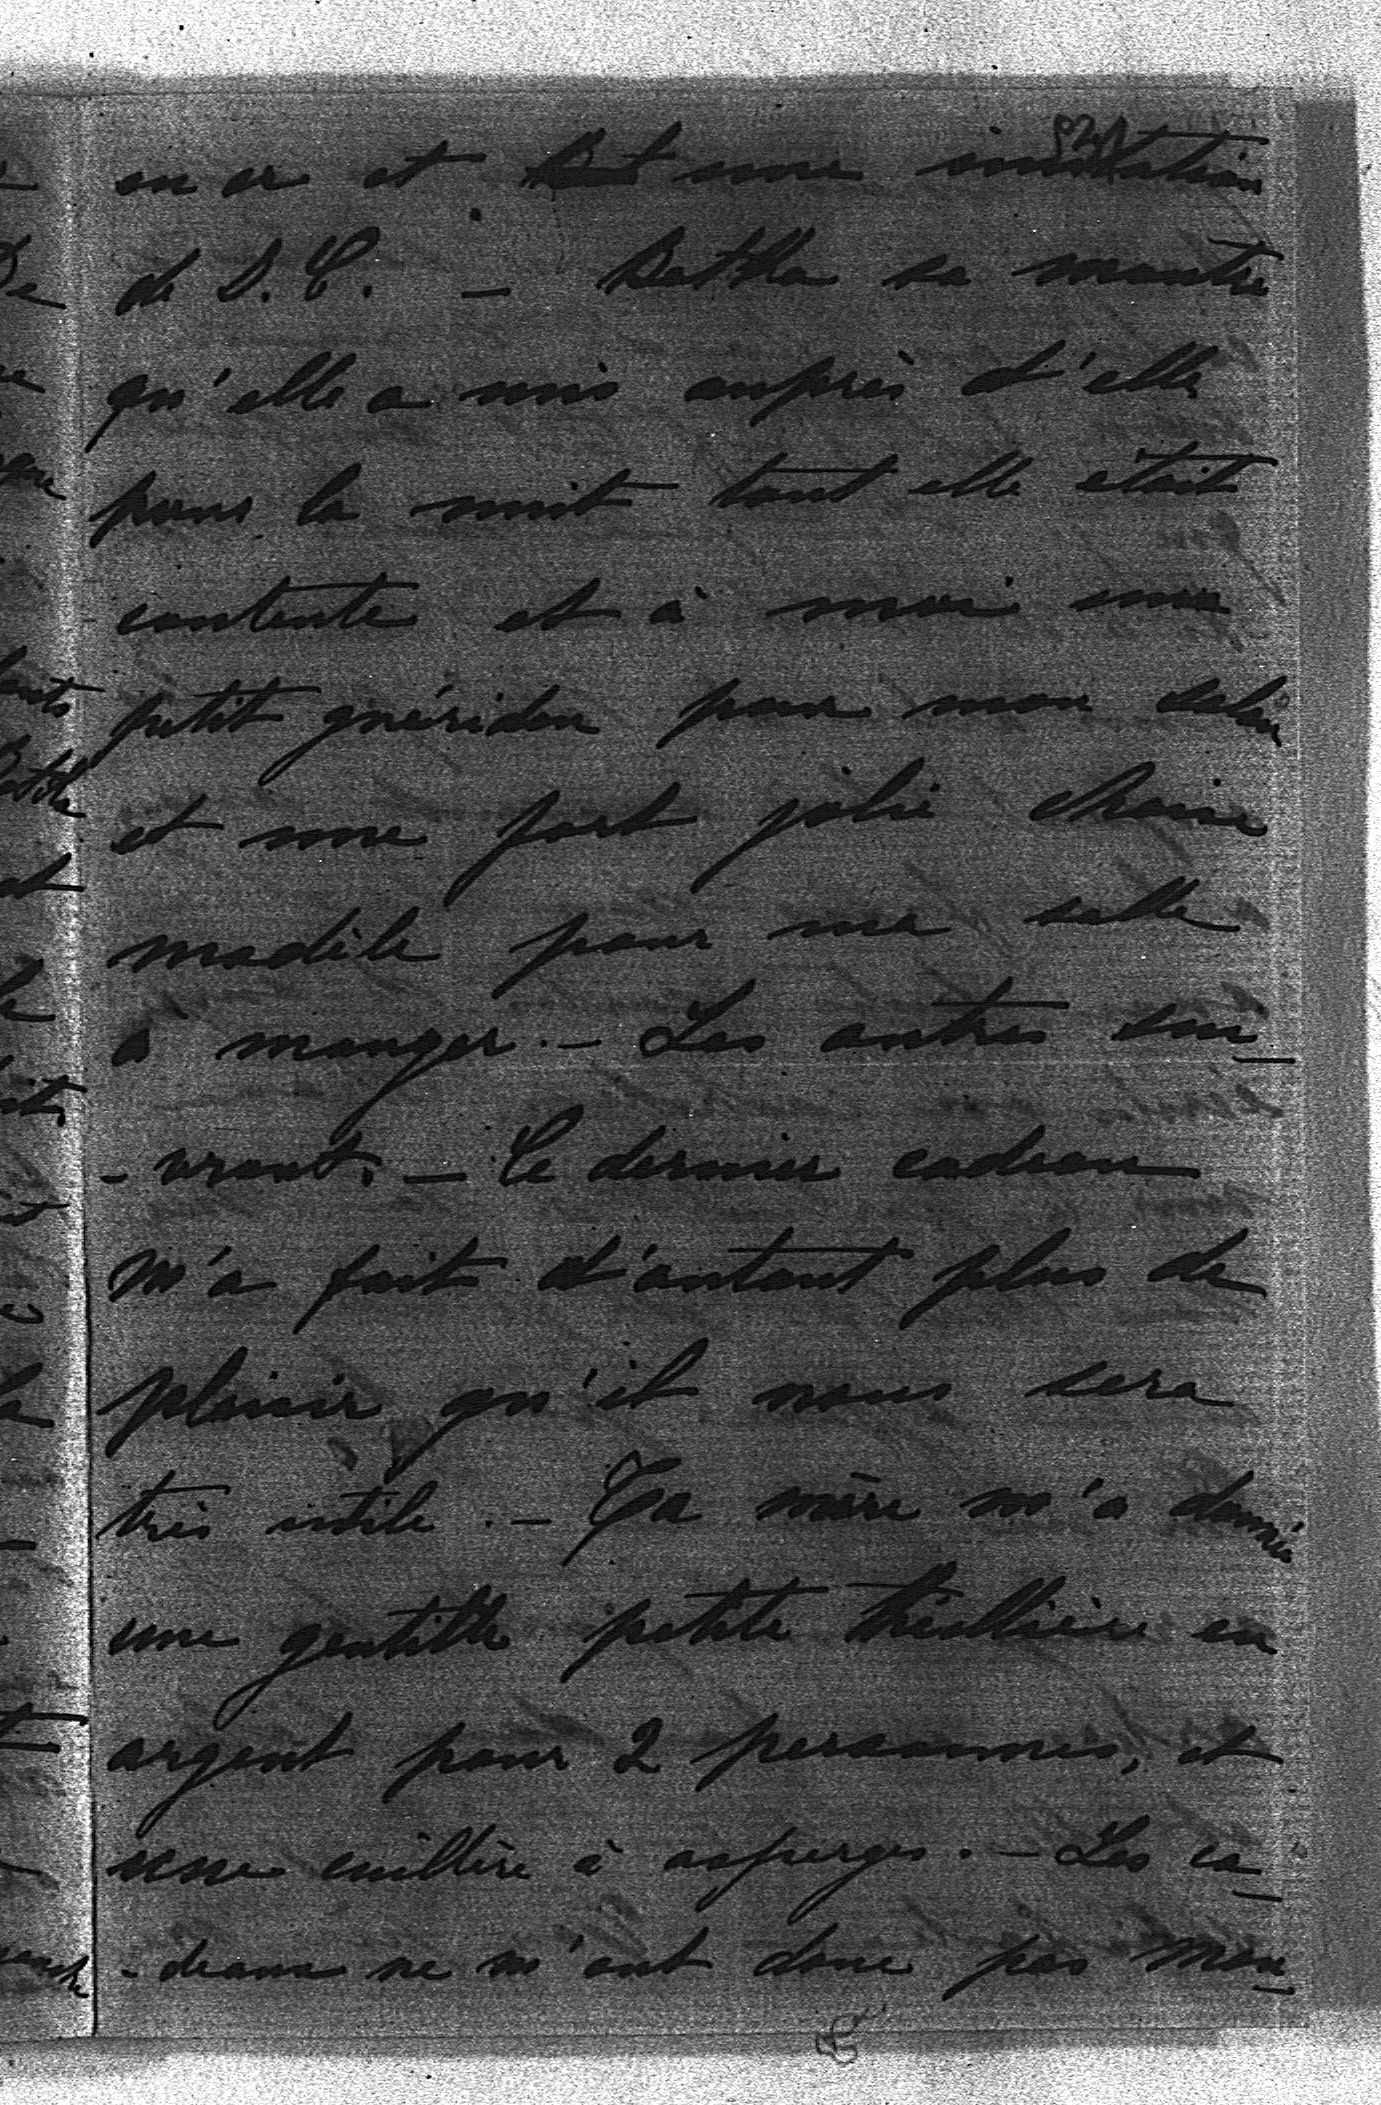 en or et une imitation
de S. C. – Bertha sa montre
qu'elle a mis auprès d'elle
pour la nuit tant elle était
contente et à moi un
petit guéridon pour mon salon
et une fort jolie chaise
modèle pour ma salle
à manger. – Les autres sui-
-vront. – Ce dernier cadeau
m'a fait d'autant plus de
plaisir qu'il nous sera
très utile. – Ta mère m'a donné
une gentille petite théillière en
argent pour 2 personnes, et
une cuillère à asperges. – Les ca-
-deaux ne m'ont donc pas man-